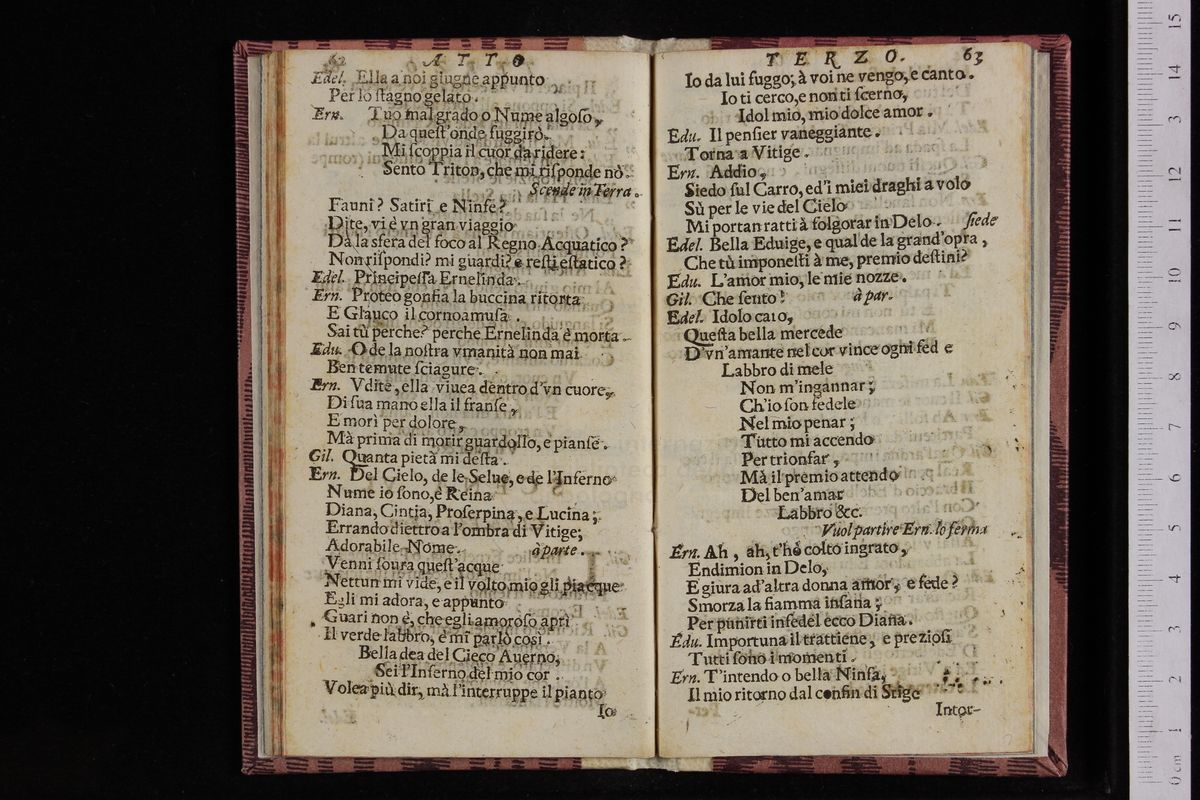 62 ATTO
Edel. Ella a noi giugne appunto
Per lo ſtagno gelato.
Ern. Tuo mal grado o Nume algoſo,
Da queſt'onde fuggirò.
Mi ſcoppia il cuor da ridere:
Sento Triton, che mi riſponde nò.
Scende in Terra.
Fauni? Satiri e Ninfe?
Dite, vi è vn gran viaggio
Dà la sfera del foco al Regno Acquatico?
Non riſpondi? mi guardi? e reſti eſtatico?
Edel. Principeſſa Ernelinda.
Ern. Proteo gonfia la buccina ritorta
E Glauco il cornoamuſa.
Sai tù perche? perche Ernelinda è morta.
Edu. O de la noſtra vmanità non mai
Ben temute ſciagure.
Ern. Vdite, ella viuea dentro d'vn cuore,
Di ſua mano ella il franſe,
E morì per dolore,
Mà prima di morir guardollo, e pianſe.
Gil. Quanta pietà mi deſta.
Ern. Del Cielo, de le Selue, e de l'Inferno
Nume io ſono, è Reina
Diana, Cintia, Proſerpina, e Lucina;
Errando diettro a l'ombra di Vitige;
Adorabile Nome. à parte.
Venni ſoura queſt'acque
Nettun mi vide, e il volto mio gli piacque
Egli mi adora, e appunto
Guari non è, che egli amoroſo aprì
Il verde labbro, e mi parlò così.
Bella dea del Cieco Auerno,
Sei l'Inferno del mio cor.
Volea più dir, mà l'interruppe il pianto
Io
TERZO. 63
Io da lui fuggo; à voi ne vengo, e canto.
Io ti cerco, e non ti ſcerno,
Idol mio, mio dolce amor.
Edu. Il penſier vaneggiante.
Torna a Vitige.
Ern. Addio,
Siedo ſul Carro, ed'i miei draghi a volo
Sù per le vie del Cielo
Mi portan ratti à folgorar in Delo. ſiede
Edel. Bella Eduige, e qual de la grand'opra,
Che tù imponeſti à me, premio deſtini?
Edu. L'amor mio, le mie nozze.
Gil. Che ſento! à par.
Edel. Idolo caro,
Queſta bella mercede
D'vn'amante nel cor vince ogni fed e
Labbro di mele
Non m'ingannar;
Ch'io ſon fedele
Nel mio penar;
Tutto mi accendo
Per trionfar,
Mà il premio attendo
Del ben'amar
Labbro &c.
Vuol partire Ern. lo ferma
Ern. Ah, ah, t'hò colto ingrato,
Endimion in Delo,
E giura ad'altra donna amor, e fede?
Smorza la fiamma inſana;
Per punirti infedel ecco Diana.
Edu. Importuna il trattiene, e prezioſi
Tutti ſono i momenti.
Ern. T'intendo o bella Ninfa,
Il mio ritorno dal confin di Stige
Intor-
0 cm 1 2 3 4 5 6 7 8 9 10 11 12 3 14 15